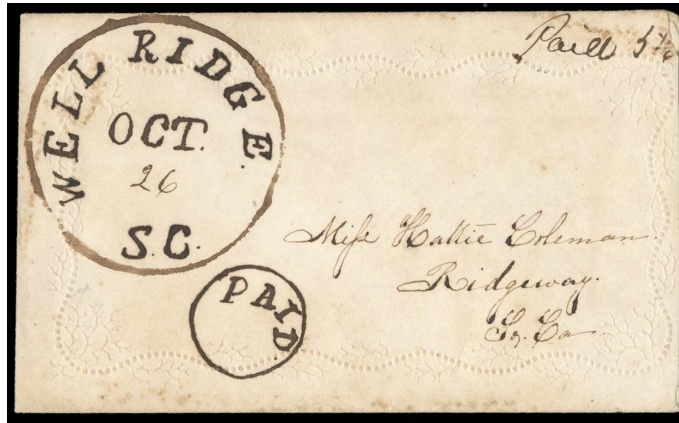 Paid 5 cts
WELL RIDGE
OCT.
26
S.C.
PAID
Miss Hattie Coleman.
Ridgeway.
So. Ca